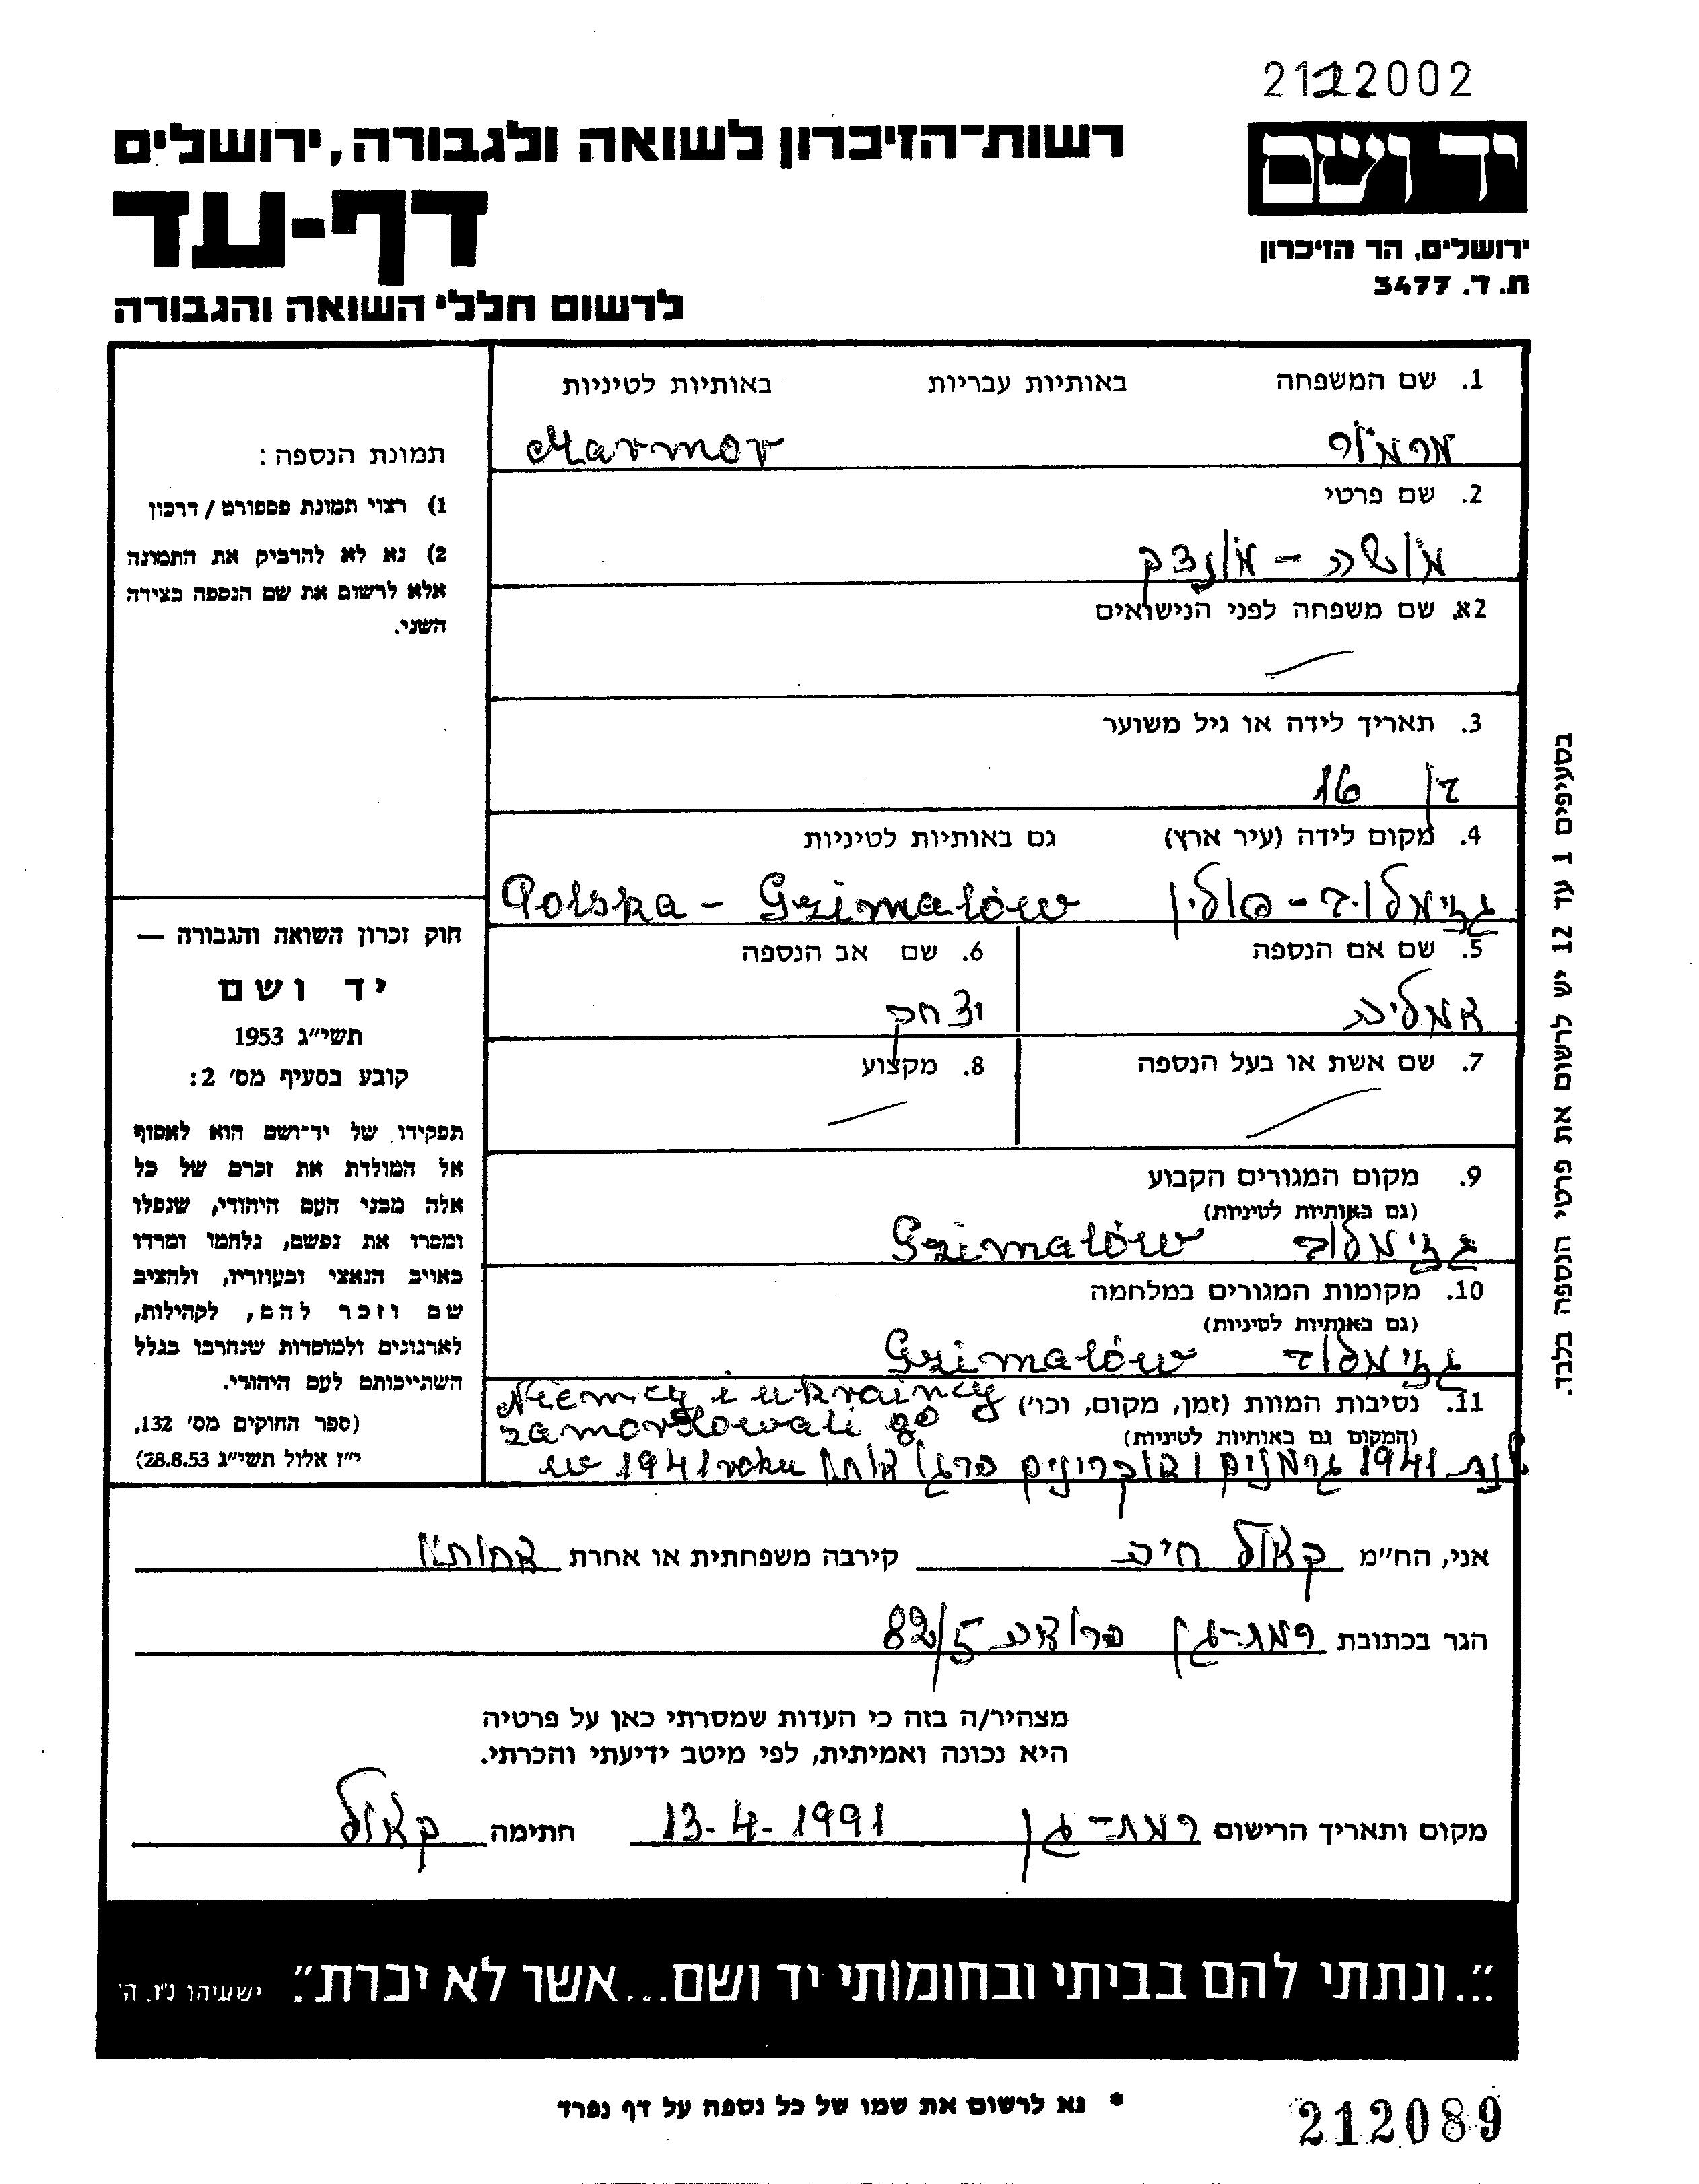 2122002
יד ושם
רשות־הזיכרון לשואה ולגבורה, ירושלים
דף-עד
ירושלים, הר הזיכרון
ת. ד. 3477
לרשום חללי השואה והגבורה
1. שם המשפחה באותיות עבריות באותיות לטיניות
מרמור Marmor
2. שם פרטי
מושה - מונדק
2א. שם משפחה לפני הנישואים
3. תאריך לידה או גיל משוער
בן 16
4. מקום לידה (עיר ארץ) גם באותיות לטיניות
גזימלוב - פולין Polska - Gzimalów
5. שם אם הנספה 6. שם אב הנספה
אמליה יצחק
7. שם אשת או בעל הנספה 8. מקצוע
9. מקום המגורים הקבוע
(גם באותיות לטיניות)
גזימלוב Gzimalów
10. מקומות המגורים במלחמה
(גם באותיות לטיניות)
גזימלוב Gzimalów
11. נסיבות המוות (זמן, מקום, וכו')
(המקום גם באותיות לטיניות)
Niemcy i ukraincy
zamordowali go
w 1941 roku
1941 גרמנים ואוקרינים הרגו אותו
תמונת הנספה:
1) רצוי תמונת פספורט / דרכון
2) נא לא להדביק את התמונה
אלא לרשום את שם הנספה בצידה
השני.
חוק זכרון השואה והגבורה —
יד ושם
תשי״ג 1953
קובע בסעיף מס׳ 2:
תפקידו של יד־ושם הוא לאסוף
אל המולדת את זכרם של כל
אלה מבני העם היהודי, שנפלו
ומסרו את נפשם, נלחמו ומרדו
באויב הנאצי ובעוזריו, ולהציב
שם וזכר להם, לקהילות,
לארגונים ולמוסדות שנחרבו בגלל
השתייכותם לעם היהודי.
(ספר החוקים מס׳ 132,
י״ז אלול תשי״ג 28.8.53)
בסעיפים 1 עד 12 יש לרשום את פרטי הנספה בלבד.
אני, הח״מ קאול חיה קירבה משפחתית או אחרת אחותו
הגר בכתובת רמת-גן הרואה 82/5
מצהיר/ה בזה כי העדות שמסרתי כאן על פרטיה
היא נכונה ואמיתית, לפי מיטב ידיעתי והכרתי.
מקום ותאריך הרישום רמת-גן 13-4-1991 חתימה קאול
״...ונתתי להם בביתי ובחומותי יד ושם...אשר לא יכרת״. ישעיהו נ״ו, ה׳
* נא לרשום את שמו של כל נספה על דף נפרד
212089